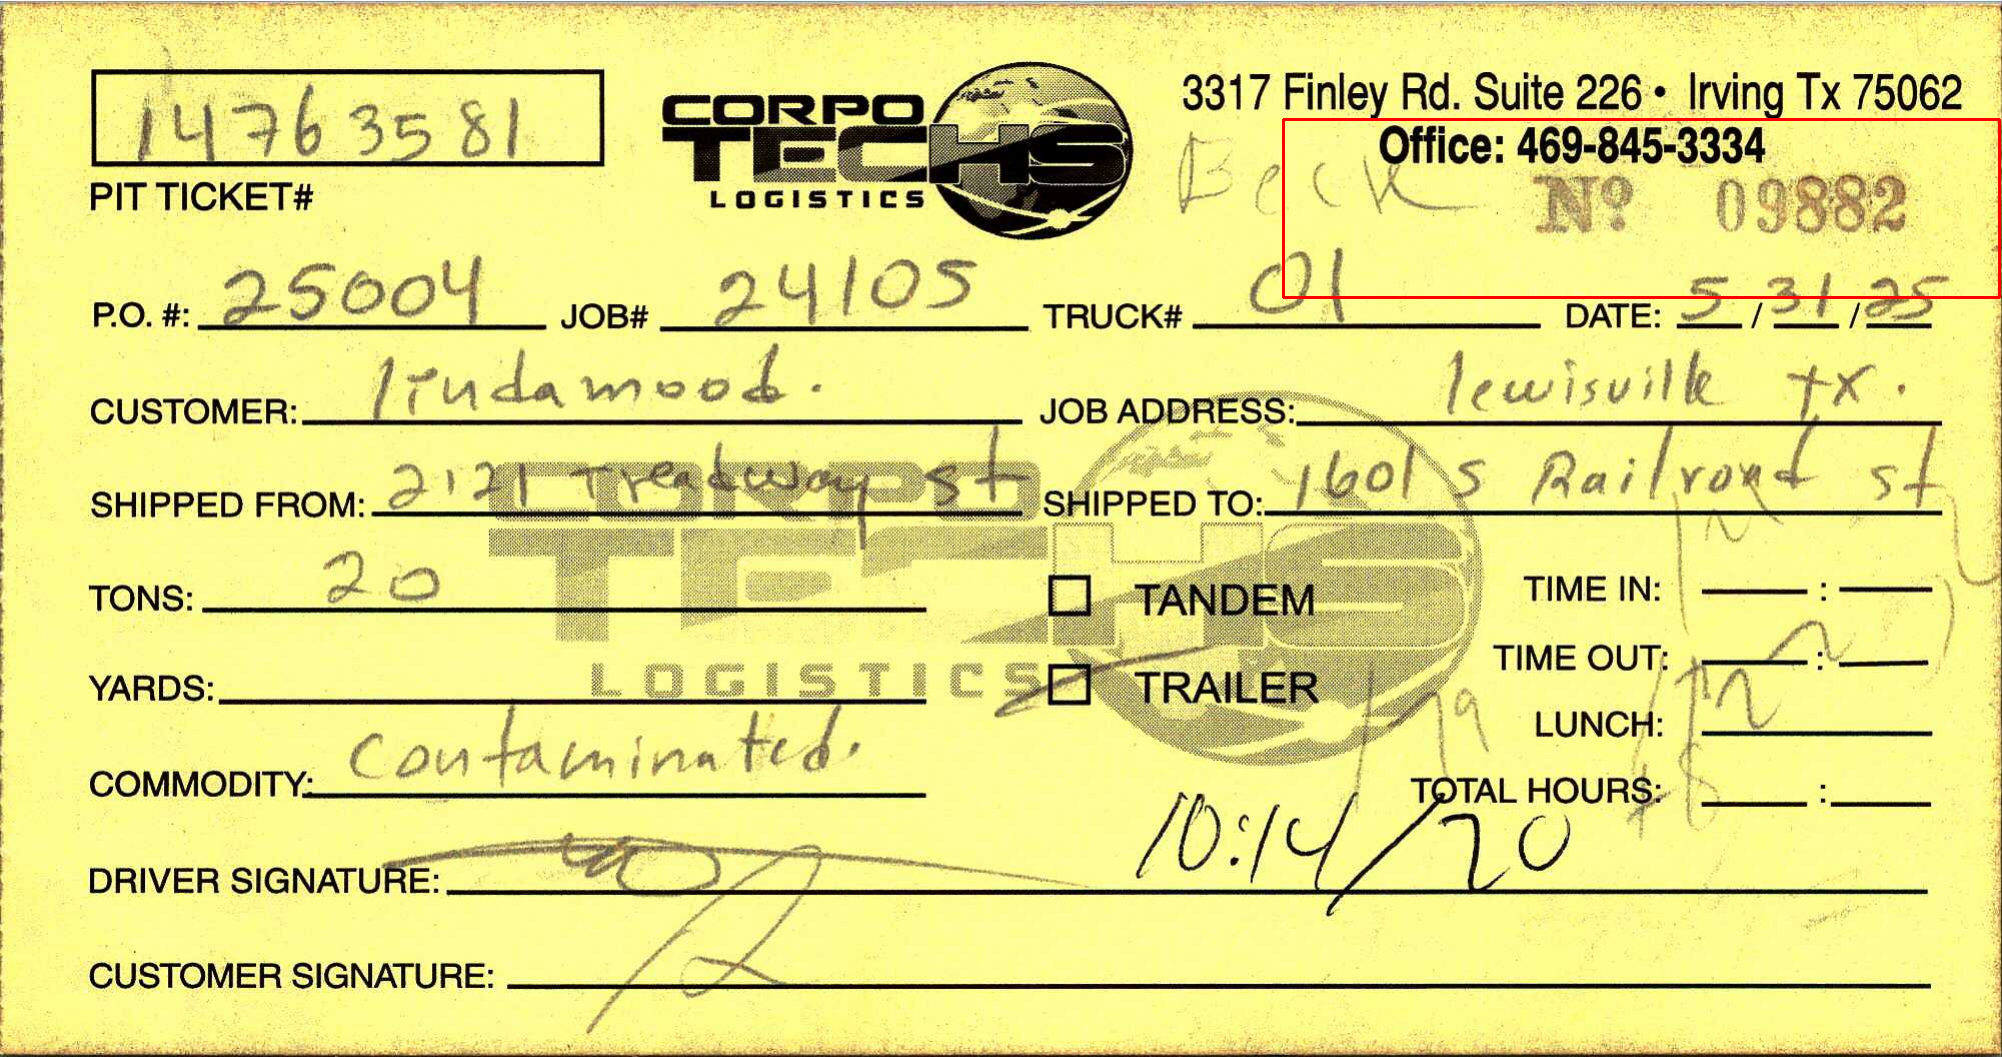 14763581
PIT TICKET#
CORPO
TECHS
LOGISTICS
3317 Finley Rd. Suite 226 • Irving Tx 75062
Office: 469-845-3334
Beck
Nº 09882
P.O. #: 25004 JOB# 24105 TRUCK# 01 DATE: 5/31/25
CUSTOMER: lindamood. JOB ADDRESS: lewisville tx.
SHIPPED FROM: 2121 Treadway st SHIPPED TO: 1601 S Railroad st
CORPO
TECHS
LOGISTICS
TONS: 20 TANDEM TIME IN: :
YARDS: TRAILER TIME OUT: :
LUNCH:
COMMODITY: contaminated. TOTAL HOURS: :
10:14/20
DRIVER SIGNATURE:
CUSTOMER SIGNATURE: